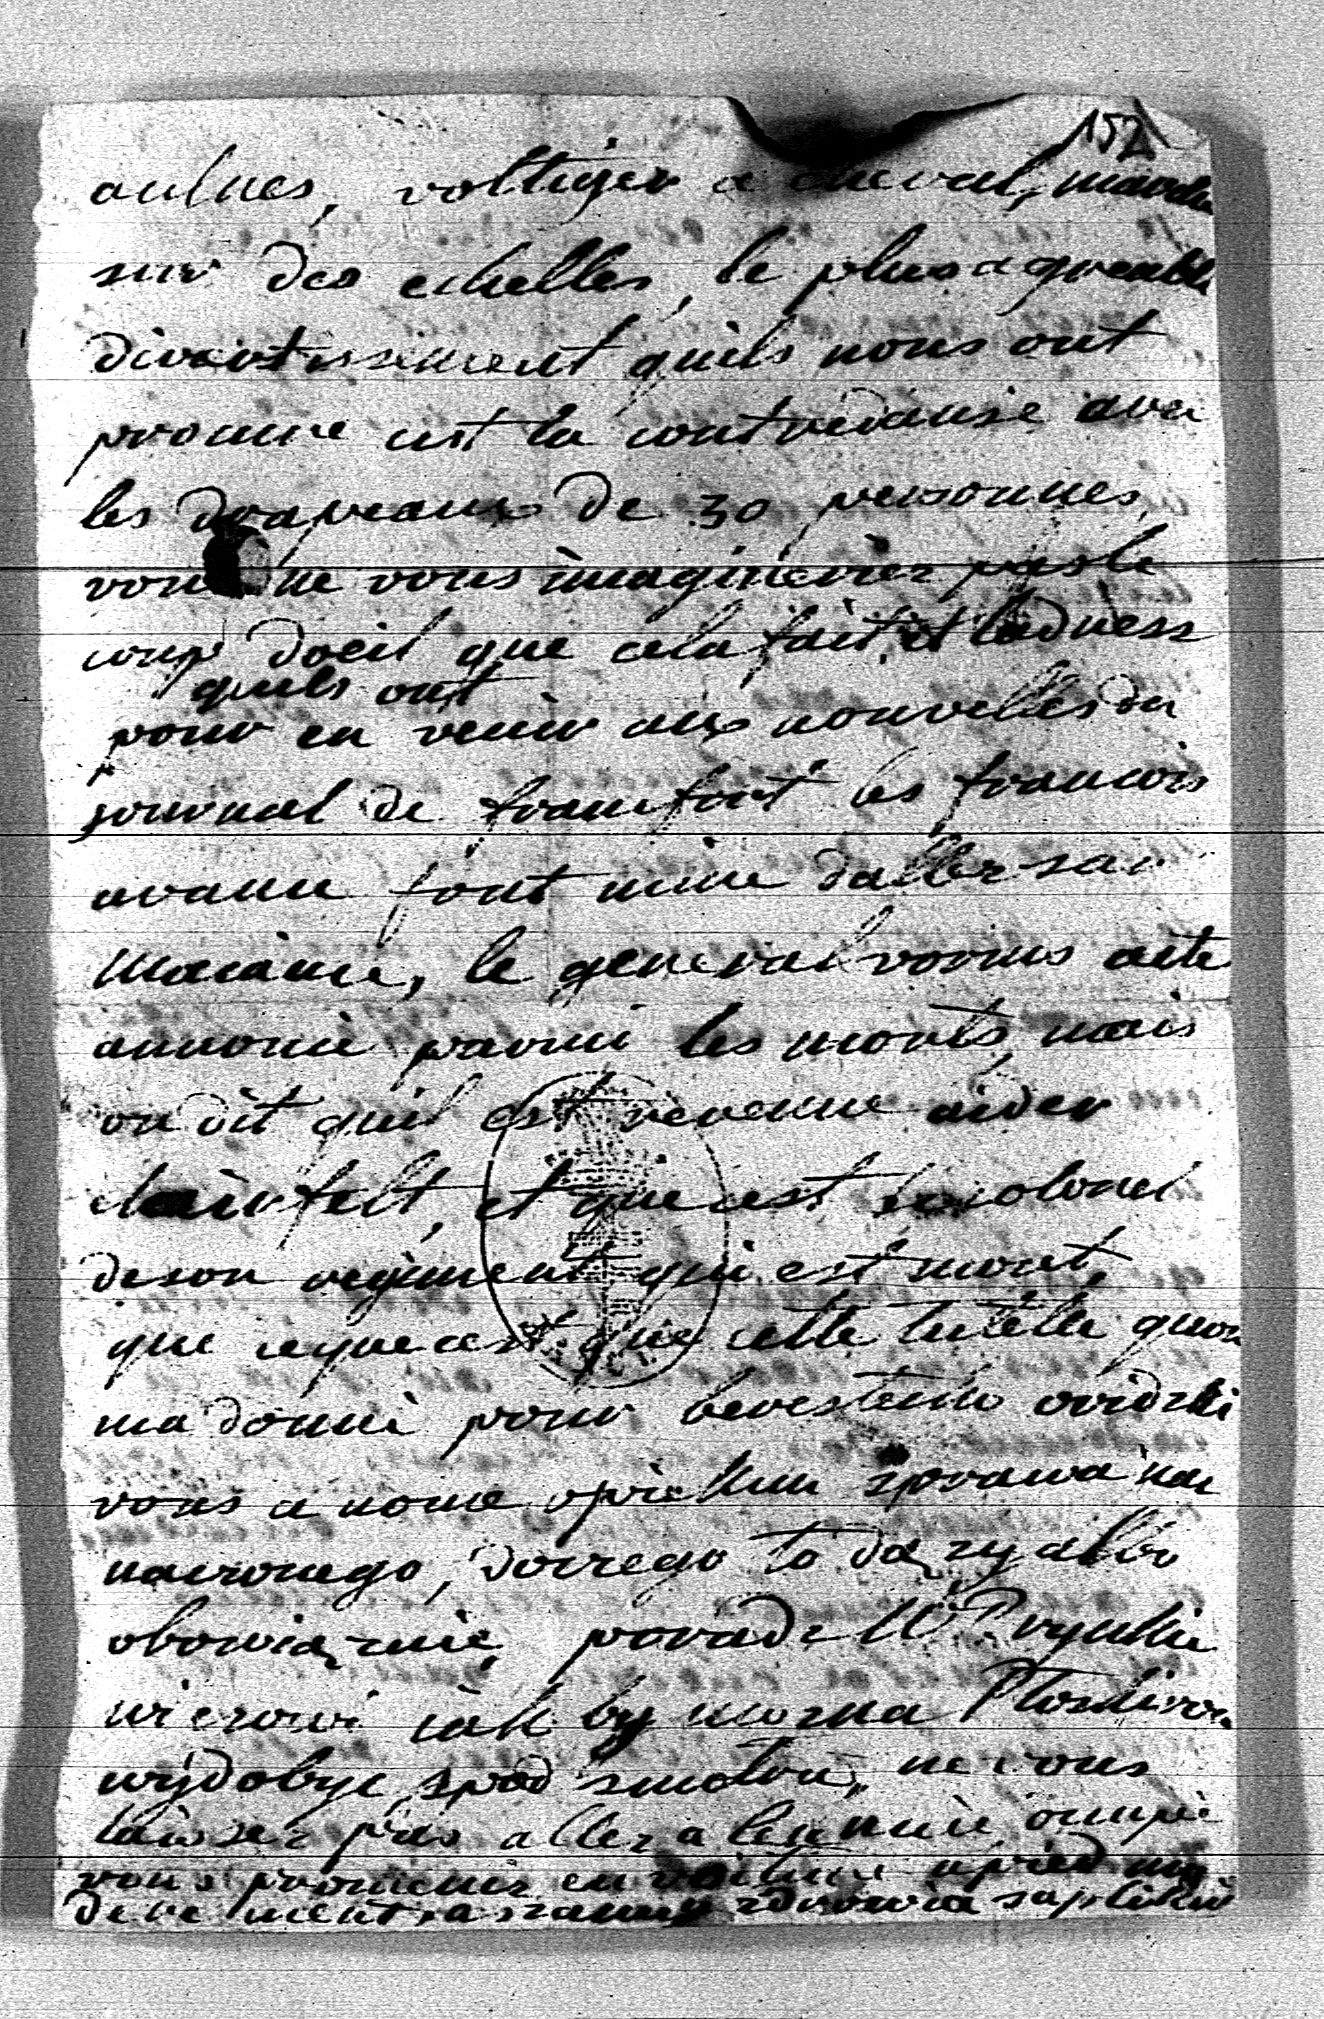 152
aulnes, voltiger a cheval, marcher
sur des echelles, le plus agreable
divertissement quils nous ont
procure cest la contredanse avec
les drapeaux de 30 personnes,
vous ne vous imagineriez pas le
coup doeil que cela fait, et ladresse
quils ont
pour en venir aux nouvelles du
journal de francfort les francois
avance font mine daller sur
maiance, le general
annonce parmi les morts, mais
on dit quil est revenue aider
clairfelt, et que cest le colonel
de son regiment qui est mort,
que ceque cest que cette tutelle quon
ma donné pour
vous a nome opiekun sprawa
do czego to dąży albo
obowiązuie,
iak by można
wydobyc spod ne vous
laissez pas aller a lennuie, occupé
vous promener en voiture apied
zdrowia